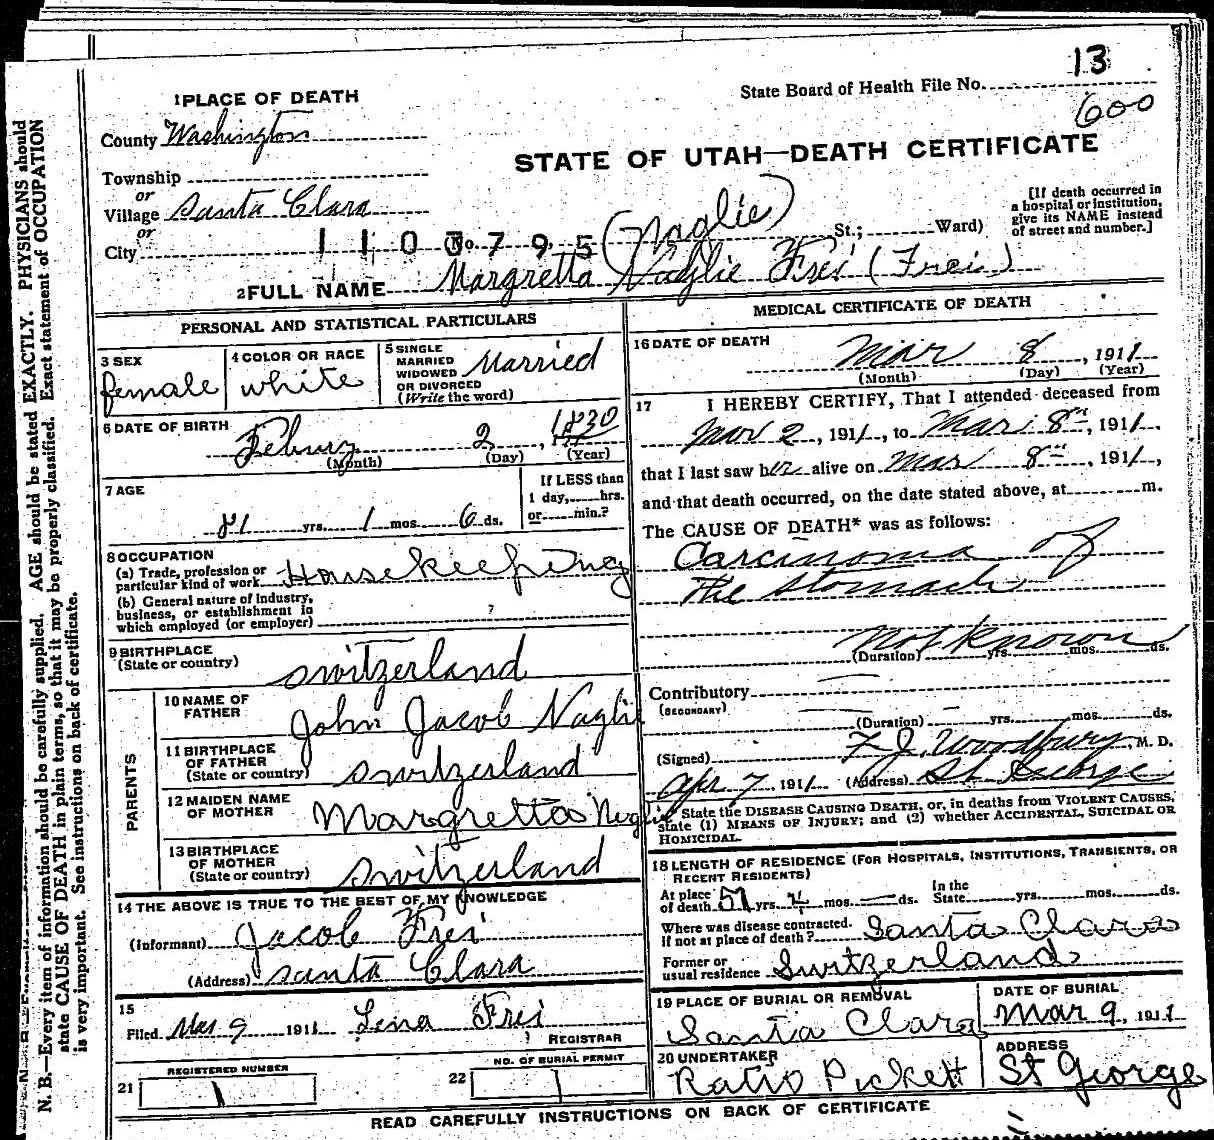 13
State Board of Health File No.
600
1 PLACE OF DEATH
County Washington
STATE OF UTAH—DEATH CERTIFICATE
Township
or
Village Santa Clara
or
City
1 1 0 3 7 9 5
(No.
(Naglie)
St.; Ward)
[If death occurred in
a hospital or institution,
give its NAME instead
of street and number.]
2 FULL NAME Margretta Naglie Frei (Frei)
PERSONAL AND STATISTICAL PARTICULARS
3 SEX
female
4 COLOR OR RACE
white
5 SINGLE
MARRIED
WIDOWED
OR DIVORCED
(Write the word)
Married
6 DATE OF BIRTH
Febury 2, 1830
(Month) (Day) (Year)
7 AGE
81 yrs. 1 mos. 6 ds.
If LESS than
1 day, hrs.
or min.?
8 OCCUPATION
(a) Trade, profession or
particular kind of work Housekeeping
(b) General nature of industry,
business, or establishment in
which employed (or employer)
9 BIRTHPLACE
(State or country) switzerland
PARENTS
10 NAME OF
FATHER
John Jacob Naglie
11 BIRTHPLACE
OF FATHER
(State or country) switzerland
12 MAIDEN NAME
OF MOTHER
Margretta Neglie
13 BIRTHPLACE
OF MOTHER
(State or country) switzerland
14 THE ABOVE IS TRUE TO THE BEST OF MY KNOWLEDGE
(Informant) Jacob Frei
(Address) santa Clara
15
Filed Mar 9 1911 Lena Frei
REGISTRAR
REGISTERED NUMBER
21 1
NO. OF BURIAL PERMIT
22 1
MEDICAL CERTIFICATE OF DEATH
16 DATE OF DEATH
Mar 8, 1911
(Month) (Day) (Year)
17 I HEREBY CERTIFY, That I attended deceased from
Mar 2, 1911, to Mar 8th, 1911,
that I last saw her alive on Mar 8th, 1911,
and that death occurred, on the date stated above, at m.
The CAUSE OF DEATH* was as follows:
Carcinoma of
the stomach
not known
(Duration) yrs. mos. ds.
Contributory
(SECONDARY)
(Duration) yrs. mos. ds.
(Signed) F J Woodbury, M. D.
Apr 7, 1911 (Address) St George
State the DISEASE CAUSING DEATH, or, in deaths from VIOLENT CAUSES,
state (1) MEANS OF INJURY; and (2) whether ACCIDENTAL, SUICIDAL OR
HOMICIDAL.
18 LENGTH OF RESIDENCE (FOR HOSPITALS, INSTITUTIONS, TRANSIENTS, OR
RECENT RESIDENTS)
At place
of death yrs. mos. ds.
In the
State yrs. mos. ds.
Where was disease contracted.
if not at place of death? Santa Clara
Former or
usual residence Switzerland
19 PLACE OF BURIAL OR REMOVAL
Santa Clara
DATE OF BURIAL
Mar 9, 1911
20 UNDERTAKER
Ratio Pickett
ADDRESS
St George
READ CAREFULLY INSTRUCTIONS ON BACK OF CERTIFICATE
N. B.—Every item of information should be carefully supplied. AGE should be stated EXACTLY. PHYSICIANS should
state CAUSE OF DEATH in plain terms, so that it may be properly classified. Exact statement of OCCUPATION
is very important. See instructions on back of certificate.